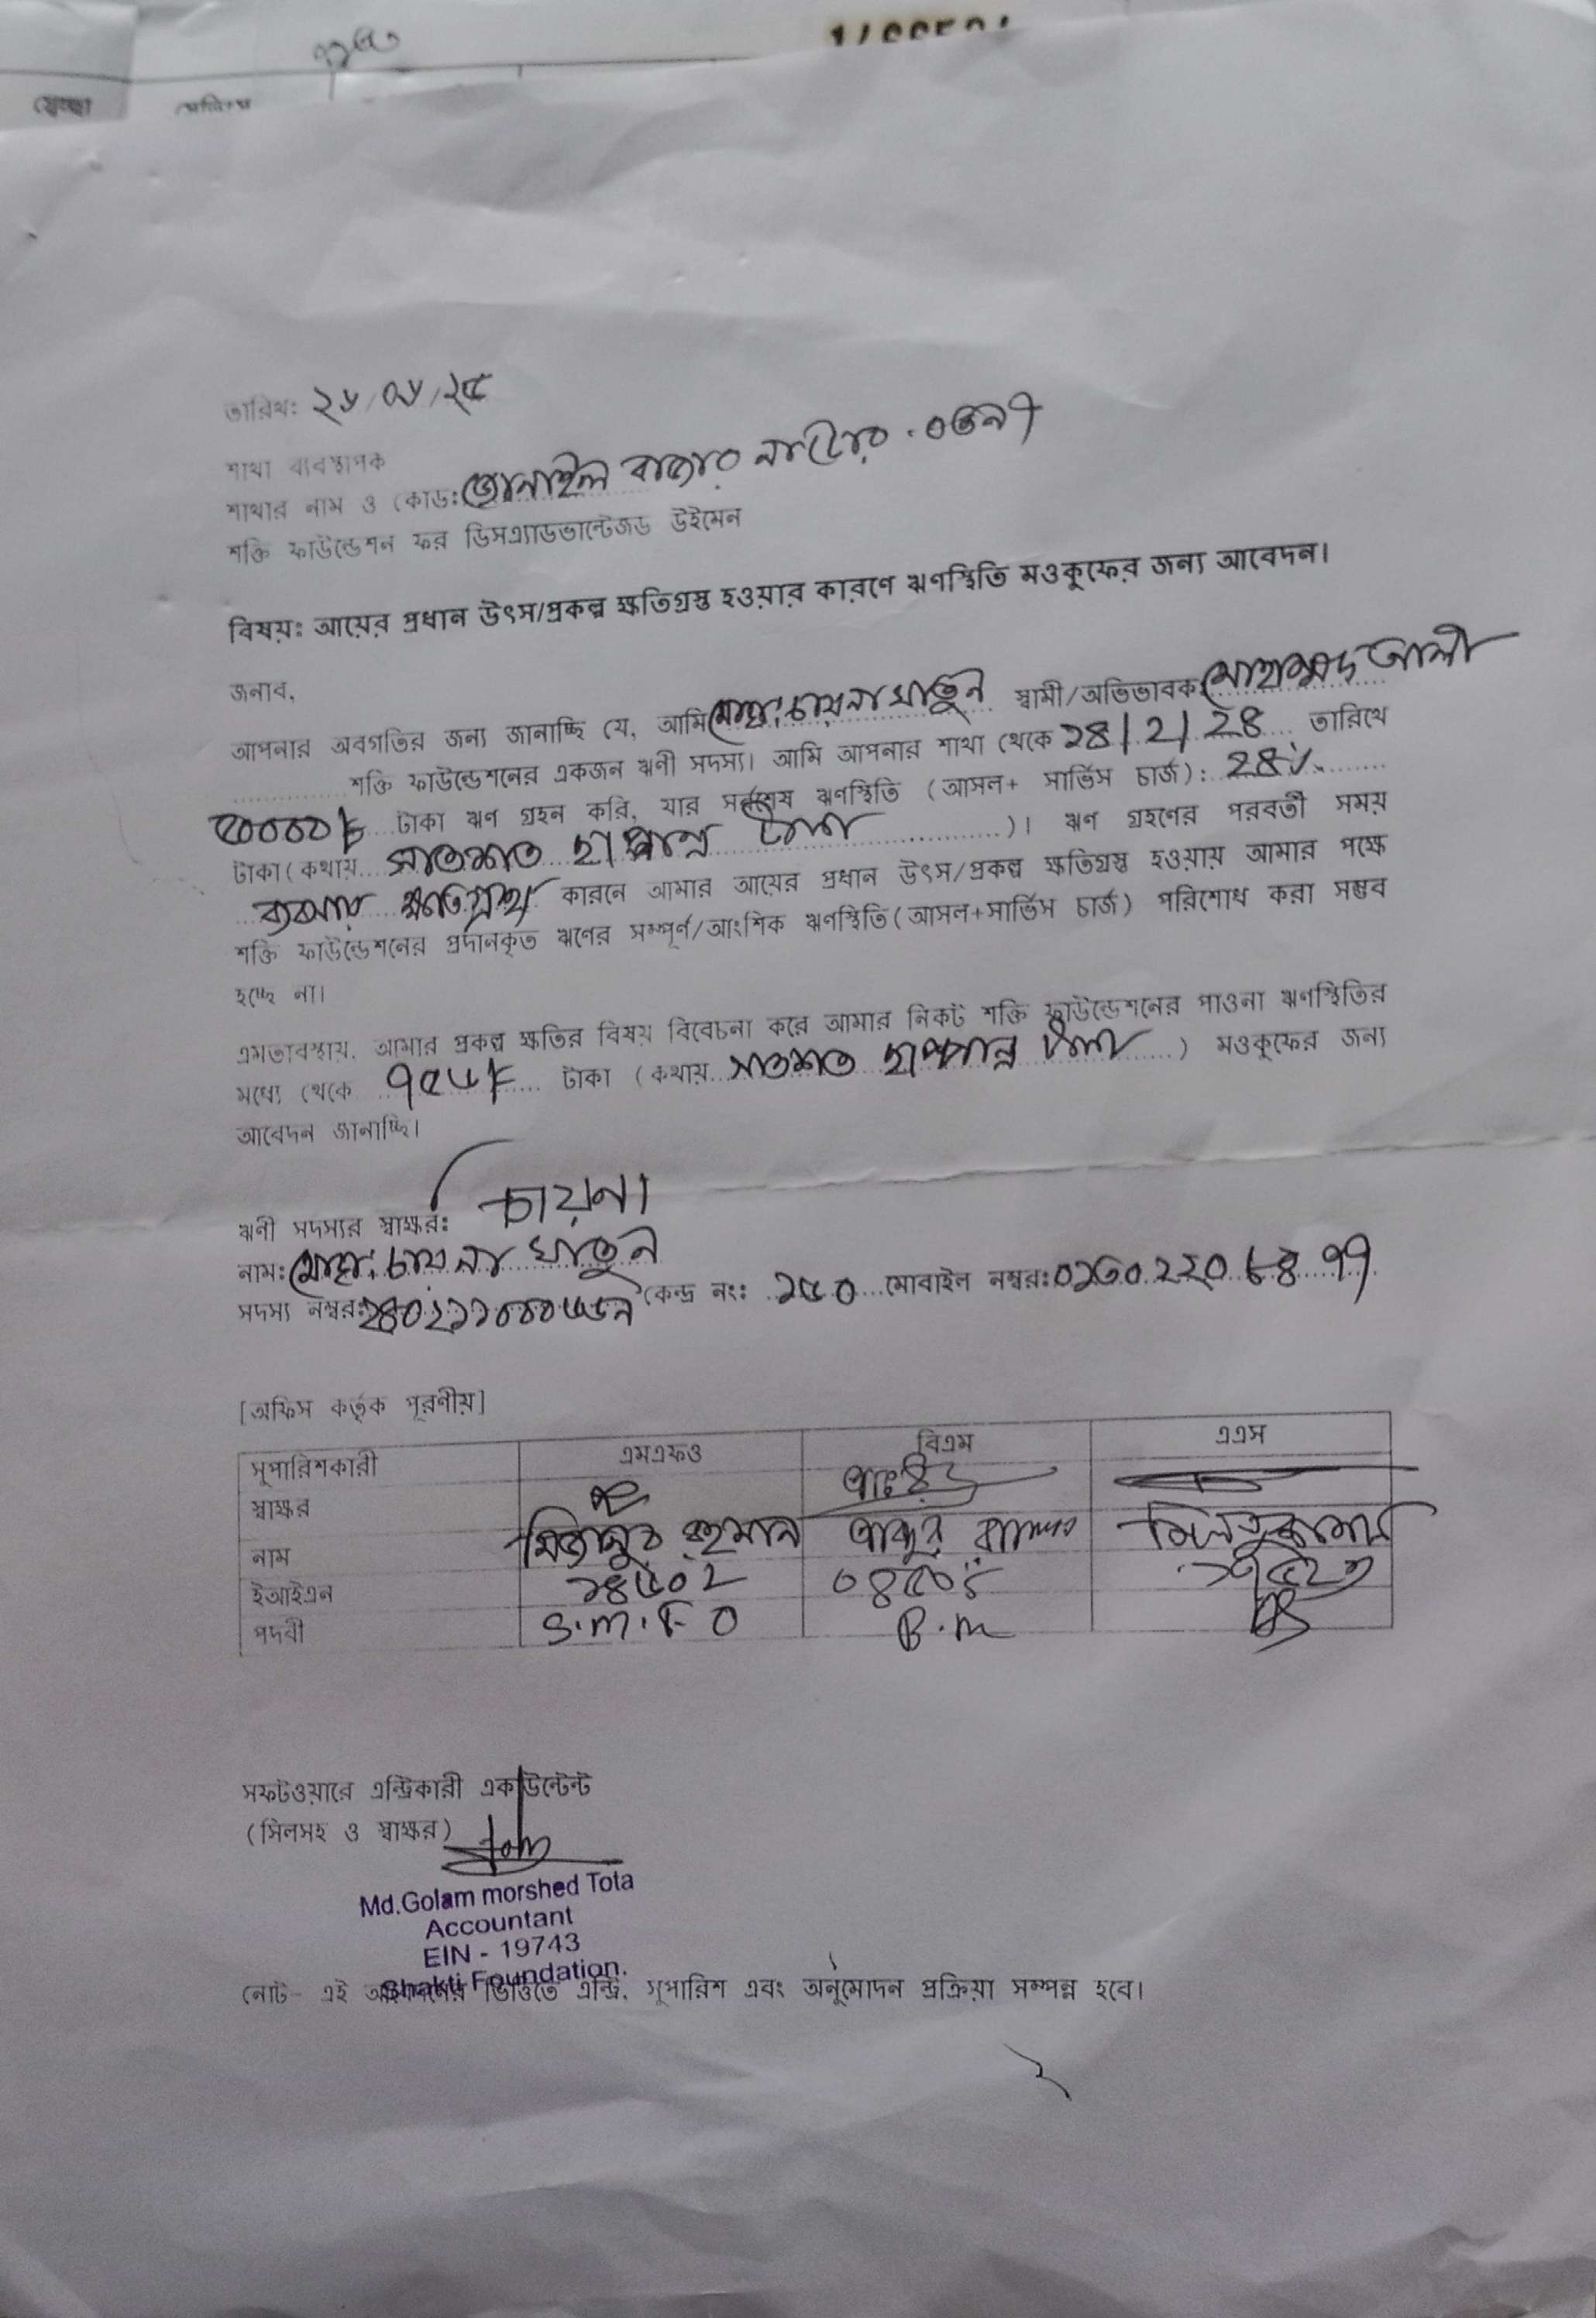 তারিখ: ২৬/০৬/২৫
শাখা ব্যবস্থাপক
শাখার নাম ও কোড: জোনাইল বাজার নাটোর. ০৩৯৭
শক্তি ফাউন্ডেশন ফর ডিসএ্যাডভান্টেজড উইমেন
বিষয়ঃ আয়ের প্রধান উৎস/প্রকল্প ক্ষতিগ্রস্ত হওয়ার কারণে ঋণস্থিতি মওকুফের জন্য আবেদন।
জনাব,
আপনার অবগতির জন্য জানাচ্ছি যে, আমি মোছা: চায়না খাতুন স্বামী/অভিভাবক মোহাম্মদ আলী
শক্তি ফাউন্ডেশনের একজন ঋণী সদস্য। আমি আপনার শাখা থেকে ২৪/2/২৪ তারিখে
৫০০০০৳ টাকা ঋণ গ্রহন করি, যার সর্বশেষ ঋণস্থিতি (আসল+ সার্ভিস চার্জ): ২৪%
টাকা (কথায় সাতশত ছাপ্পান্ন টাকা )। ঋণ গ্রহণের পরবর্তী সময়
ব্যবসায় ক্ষতিগ্রস্থ কারনে আমার আয়ের প্রধান উৎস/প্রকল্প ক্ষতিগ্রস্ত হওয়ায় আমার পক্ষে
শক্তি ফাউন্ডেশনের প্রদানকৃত ঋণের সম্পূর্ণ/আংশিক ঋণস্থিতি(আসল+সার্ভিস চার্জ) পরিশোধ করা সম্ভব
হচ্ছে না।
এমতাবস্থায়, আমার প্রকল্প ক্ষতির বিষয় বিবেচনা করে আমার নিকট শক্তি ফাউন্ডেশনের পাওনা ঋণস্থিতির
মধ্যে থেকে ৭৫৬৳ টাকা (কথায় সাতশত ছাপ্পান্ন টাকা ) মওকুফের জন্য
আবেদন জানাচ্ছি।
ঋণী সদস্যর স্বাক্ষর: চায়না
নাম: মোছা: চায়না খাতুন
সদস্য নম্বর: কেন্দ্র নং: ২৫০ মোবাইল নম্বর:
[অফিস কর্তৃক পূরণীয়]
সুপারিশকারী এমএফও বিএম এএস
স্বাক্ষর
নাম মিজানুর রহমান
ইআইএন
পদবী S.M.F O B.M AS
সফটওয়ারে এন্ট্রিকারী একাউন্টেন্ট
(সিলসহ ও স্বাক্ষর)
Md.Golam morshed Tota
Accountant
EIN - 19743
Shakti Foundation.
নোট- এই আবেদনের ভিত্তিতে এন্ট্রি, সুপারিশ এবং অনুমোদন প্রক্রিয়া সম্পন্ন হবে।